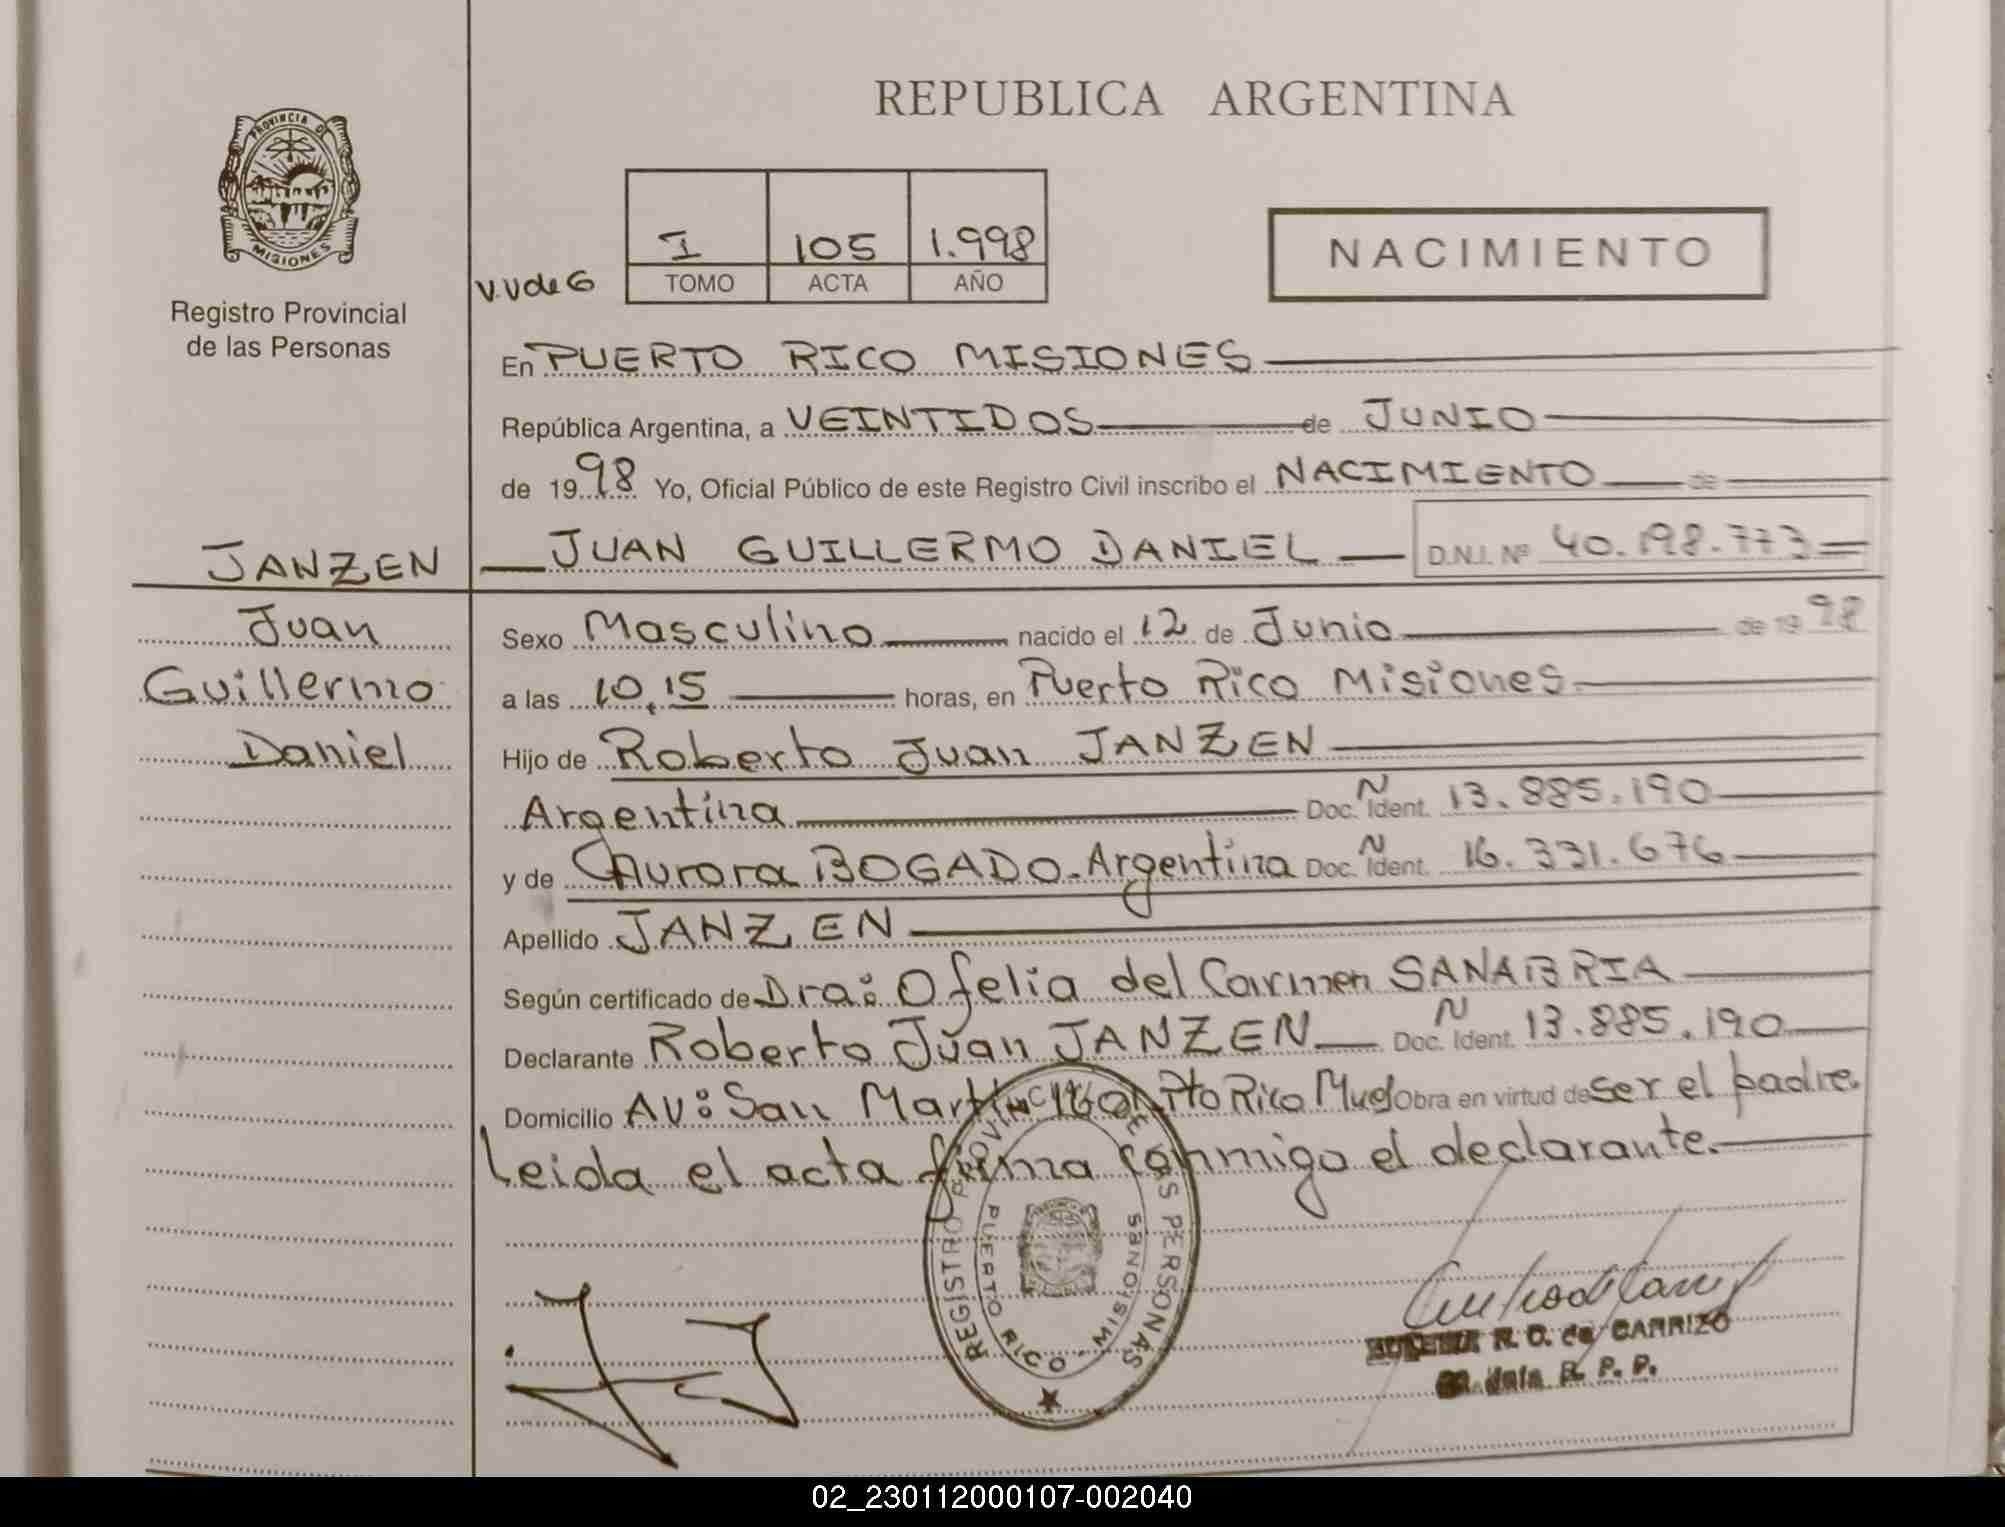 REPUBLICA ARGENTINA
PROVINCIA DE
MISIONES
Registro Provincial
de las Personas
I 105 1.998
TOMO ACTA AÑO
V.V de G
NACIMIENTO
En PUERTO RICO MISIONES
República Argentina, a VEINTIDOS de JUNIO
de 1998 Yo, Oficial Público de este Registro Civil inscribo el NACIMIENTO de
JANZEN
JUAN GUILLERMO DANIEL D.N.I. Nº 40.198.773
Juan
Guillermo
Daniel
Sexo Masculino nacido el 12 de Junio de 1998
a las 10,15 horas, en Puerto Rico Misiones
Hijo de Roberto Juan JANZEN
Argentina Doc. Ñ Ident. 13.885.190
y de Aurora BOGADO-Argentina Doc. Ñ Ident. 16.331.676
Apellido JANZEN
Según certificado de Dra: Ofelia del Carmen SANABRIA
Declarante Roberto Juan JANZEN Doc. Ñ Ident. 13.885.190
Domicilio Av: San Martín Pto Rico Obra en virtud de ser el padre.
Leida el acta firma conmigo el declarante.
REGISTRO PROVINCIAL DE LAS PERSONAS
PUERTO RICO - MISIONES
R. O. de CARRIZO
R. P. P.
02_230112000107-002040